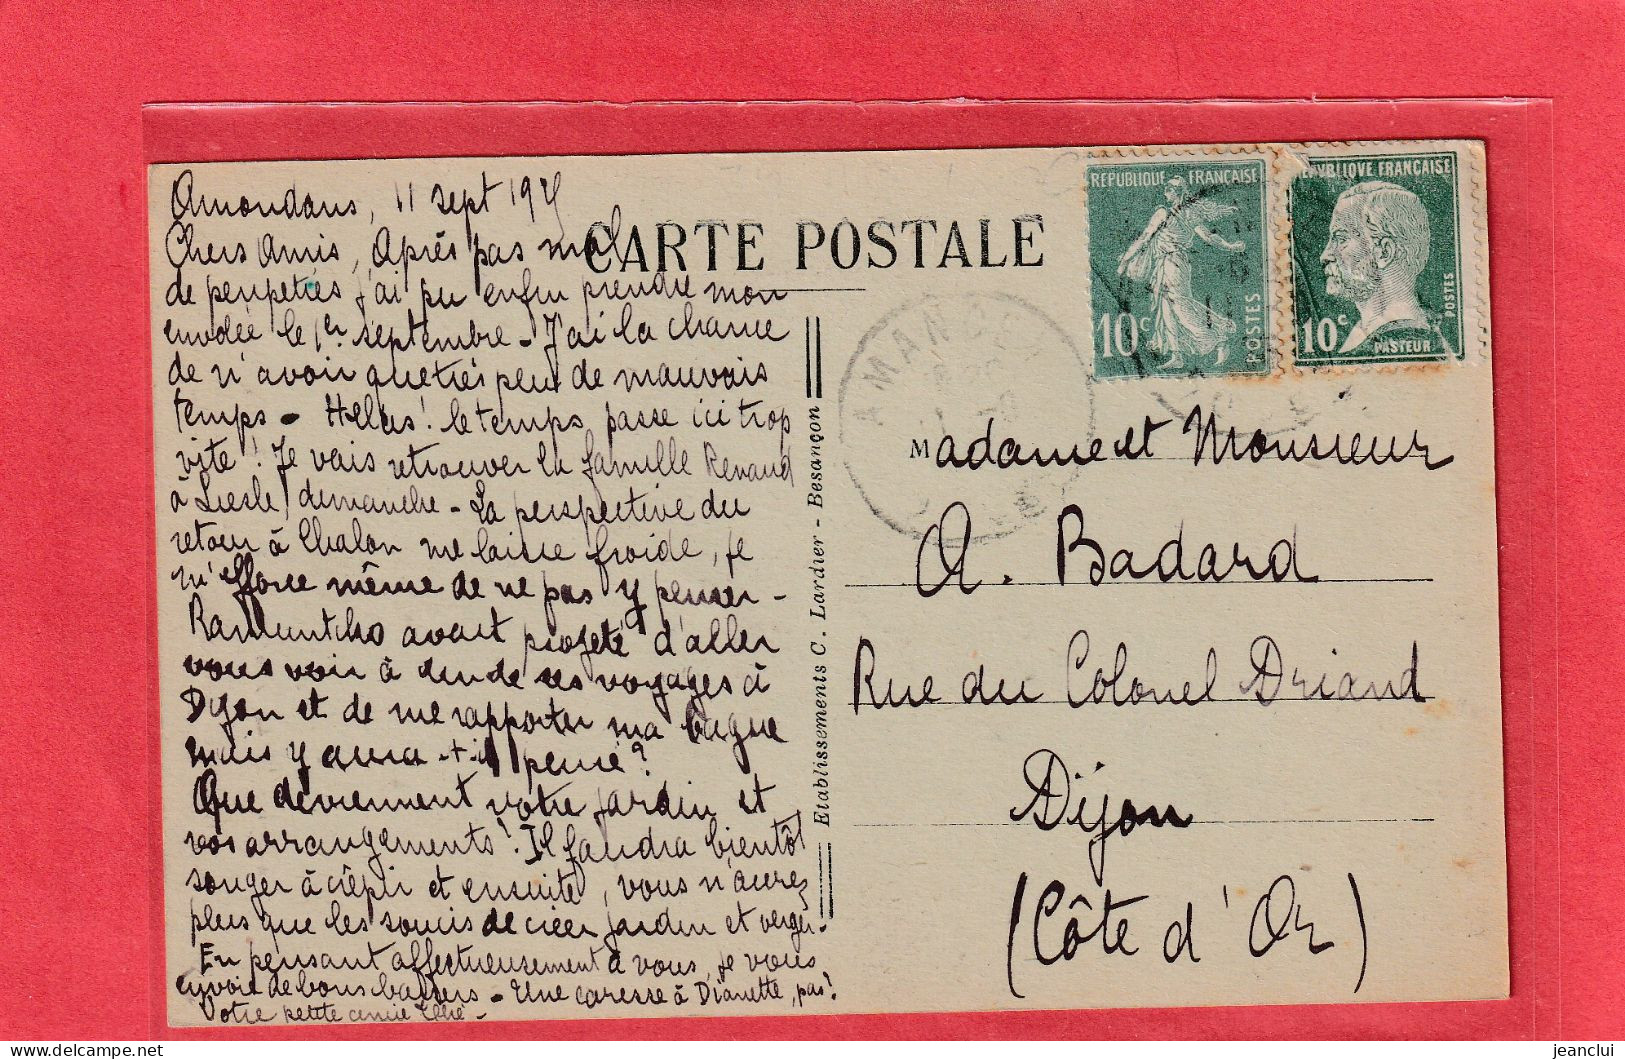 Amondans, 11 sept 19
Chers Amis, Après pas mal
de péripéties j'ai pu enfin prendre mon
envolée le 1er septembre - J'ai la chance
de n'avoir que très peu de mauvais
temps - Hélas! le temps passe ici trop
vite! Je vais retrouver la famille Renaud
à Liesle, dimanche - La perspective du
retour à Chalon me laisse froide, je
m'efforce même de ne pas y penser -
Ramuntcho avait projeté d'aller
vous voir à de ses voyages à
Dijon et de me rapporter ma bague
mais y aura-t-il pensé?
Que deviennent votre jardin et
vos arrangements? Il faudra bientôt
songer à crépir et ensuite, vous n'aurez
plus que les soucis de créer jardin et verger-
En pensant affectueusement à vous, je vous
envoie de bons baisers - Une caresse à Dianette, pas?
Votre petite amie
CARTE POSTALE
Etablissements C. Lardier - Besançon
REPUBLIQUE FRANÇAISE
10c
POSTES
REPUBLIQUE FRANÇAISE
10c
POSTES
PASTEUR
AMAN
Madame et Monsieur
A. Badard
Rue du Colonel Driand
Dijon
(Côte d'Or)
delcampe.net
jeanclui